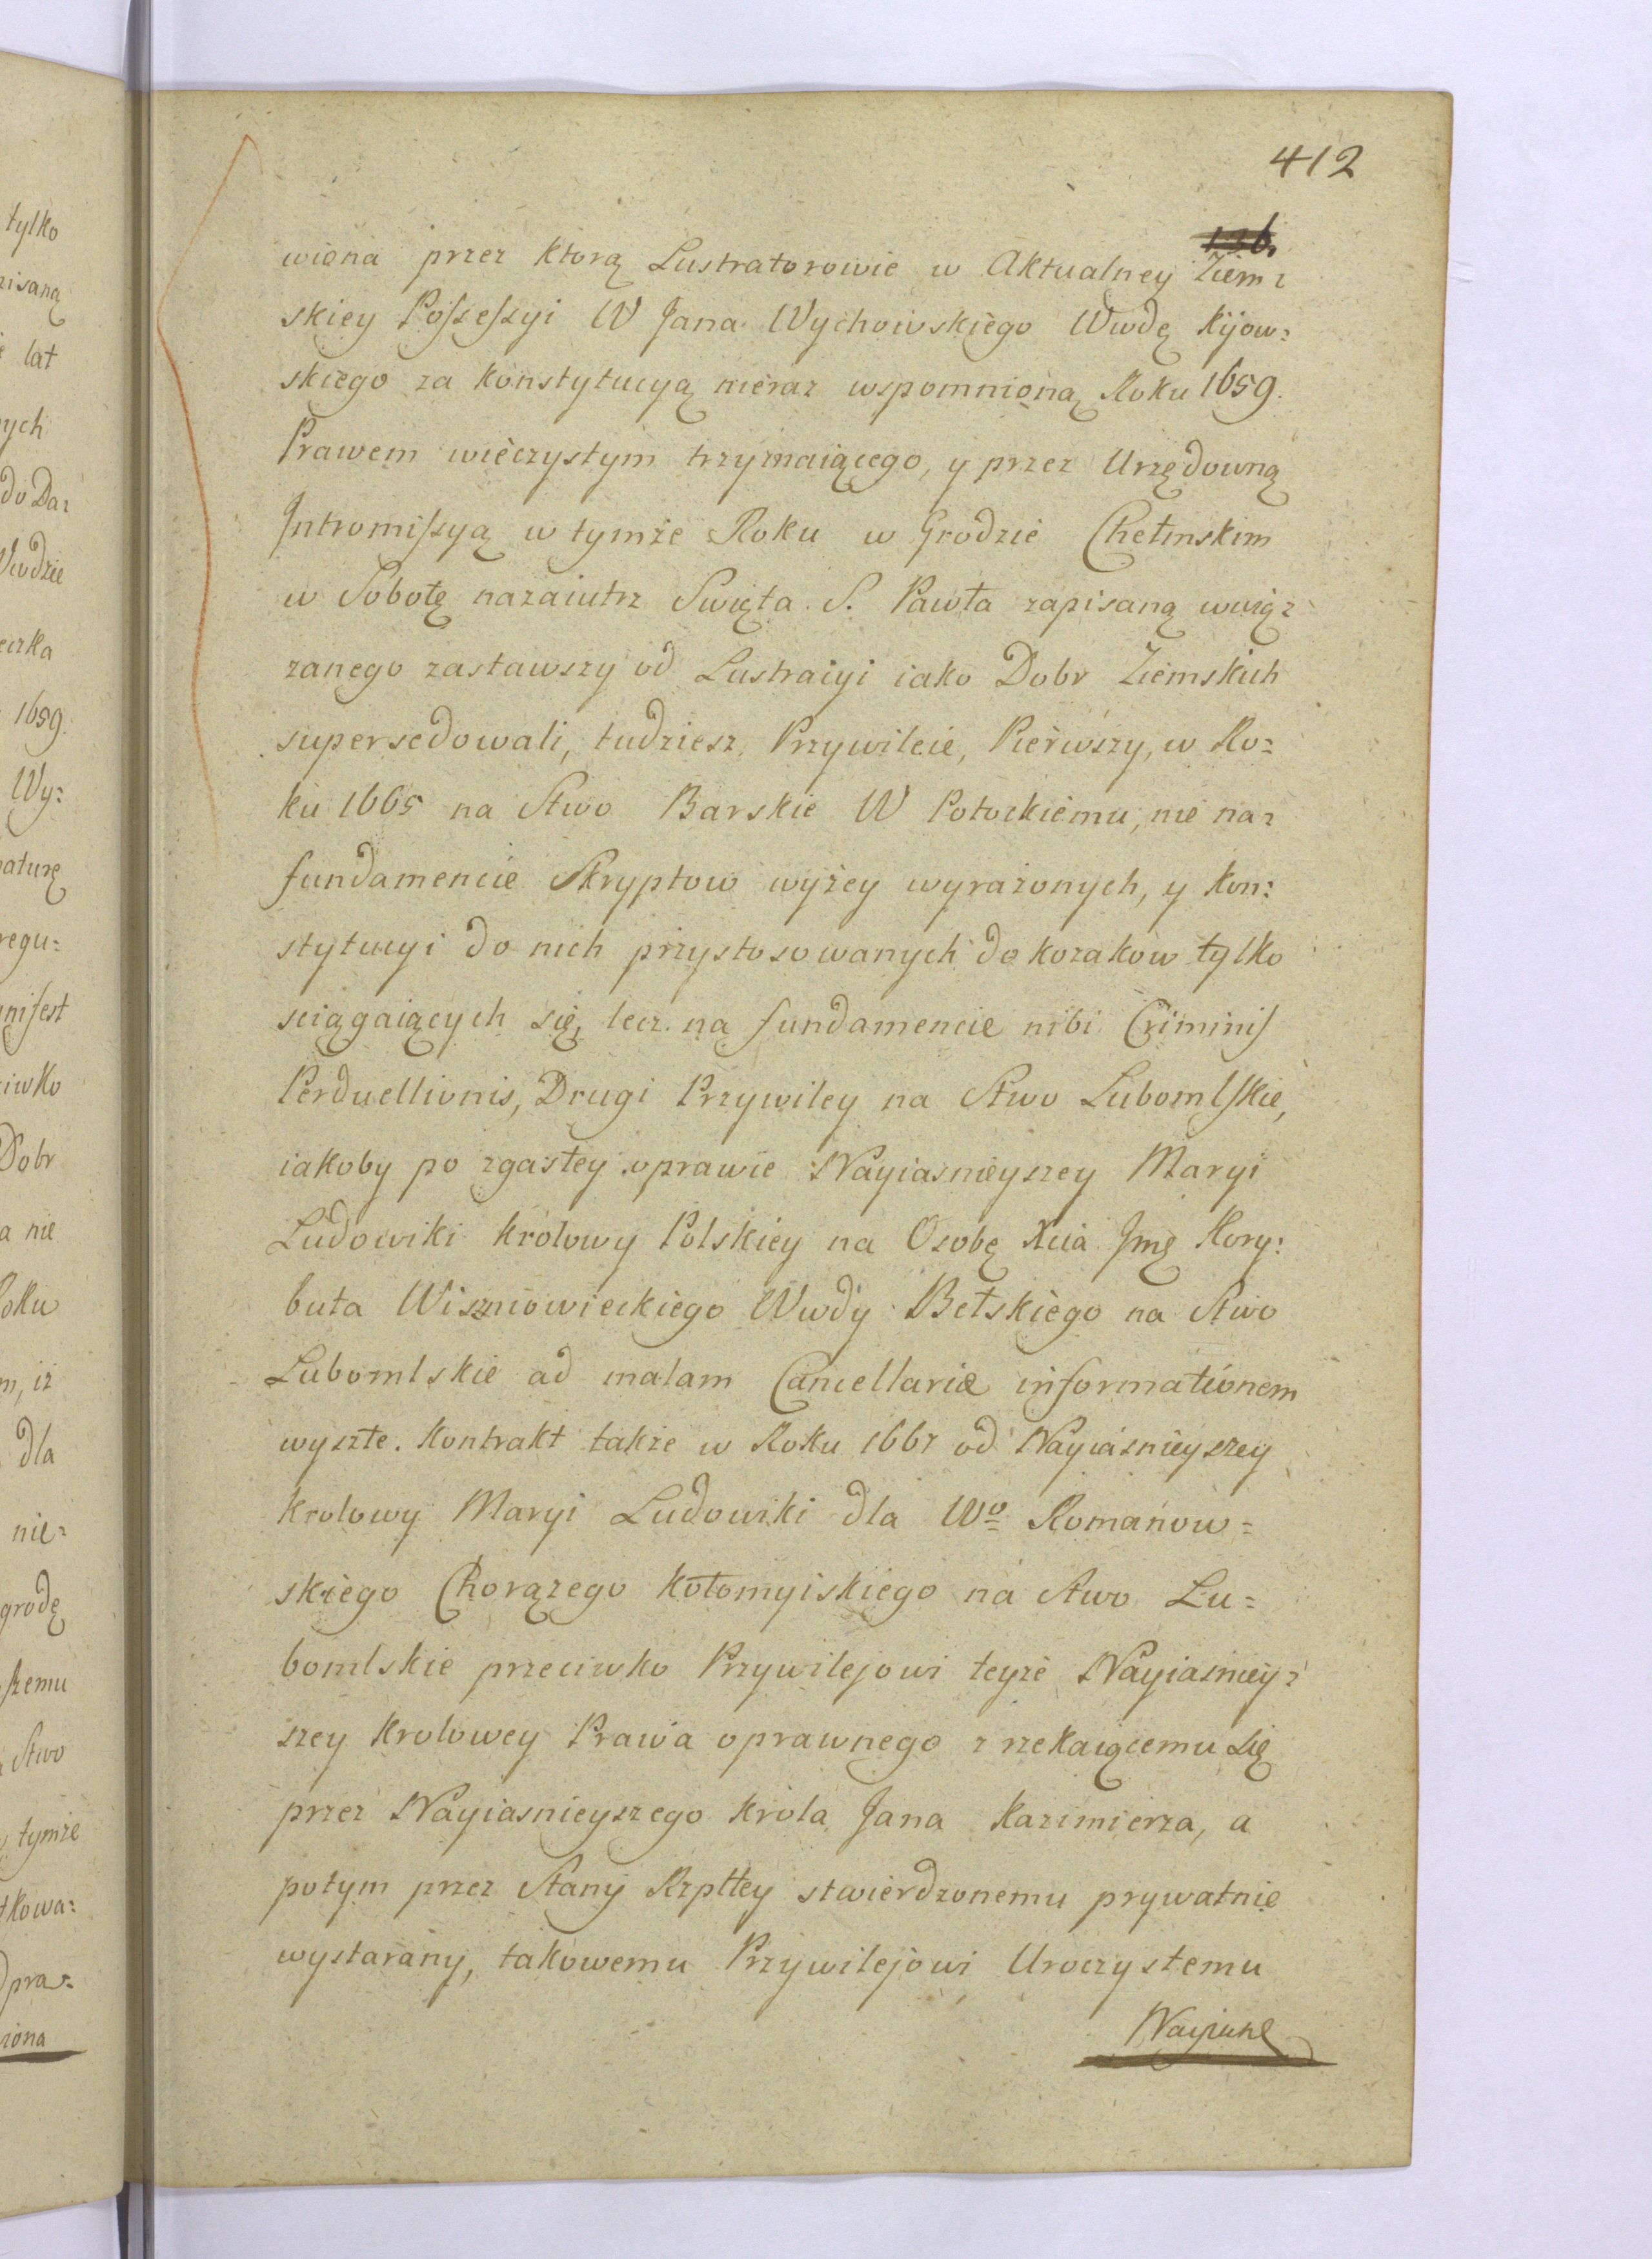 412
136.
wiona przez ktorą Lustratorowie w Aktualney Ziem:
skiey Possessyi W Jana Wychowskiego Wwdę Kijow:
skiego za konstytucyą nieraz wspomnioną Roku 1659.
Prawem wieczystym trzymaiącego, y przez Urzędowną
Jntromissyą w tymże Roku w Grodzie Chełmskim
w Sobotę nazaiutrz Swięta S. Pawła zapisaną wwią:
zanego zastawszy od Lustracyi iako Dobr Ziemskich
supersedowali, tudziesz Przywileie, Pierwszy, w Ro:
ku 1665 na Stwo Barskie W Potockiemu, nie na:
fundamencie Skryptow wyżey wyrażonych, y kon:
stytucyi do nich przystosowanych do kozakow tylko
sciągaiących się, lecz na fundamencie nibi Criminis
Perduellionis, Drugi Przywiley na Stwo Lubomlskie,
iakoby po zgasłey oprawie Nayiasnieyszey Maryi
Ludowiki krolowy Polskiey na Osobę Xcia Jmę Kory:
buta Wiszniowieckiego Wwdy Bełskiego na Stwo
Lubomlskie ad malam Cancellariæ informationem
wyszłe. Kontrakt także w Roku 1667 od Nayiasnieyszey
krolowy Maryi Ludowiki dla Wo Romanow=
skiego Chorązego kołomyiskiego na Stwo Lu=
bomlskie przeciwko Przywilejowi teyże Nayiasniey:
szey krolowey Prawa oprawnego zrzekaiącemu się
przez Nayiasnieyszego krola Jana Kazimierza, a
potym przez Stany Rzpltey stwierdzonemu prywatnie
wystarany, takowemu Przywilejowi Uroczystemu
tylko
pisaną
lat
nych
do Da:
Wwdzie
eczka
1659.
Wy:
naturę
regu:
anifest
ciwko
Dobr
a nie
Roku
m, iż
dla
nie:
grodę
szemu
Stwo
tymże
tkowa:
pra:
iona